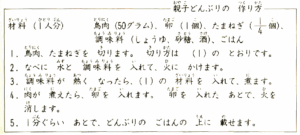 親子どんぶりの 作り方
材料(1人分) 鳥肉(50グラム)、卵(1個)、たまねぎ(1/4個)、
調味料(しょうゆ、砂糖、酒)、ごはん
1. 鳥肉、たまねぎを 切ります。 切り方は (1)の とおりです。
2. なべに 水と 調味料を 入れて、火に かけます。
3. 調味料が 熱く なったら、(1)の 材料を 入れて、煮ます。
4. 肉が 煮えたら、 卵を 入れます。 卵を 入れた あとで、火を
消します。
5. 1分ぐらい あとで、どんぶりの ごはんの 上に 載せます。